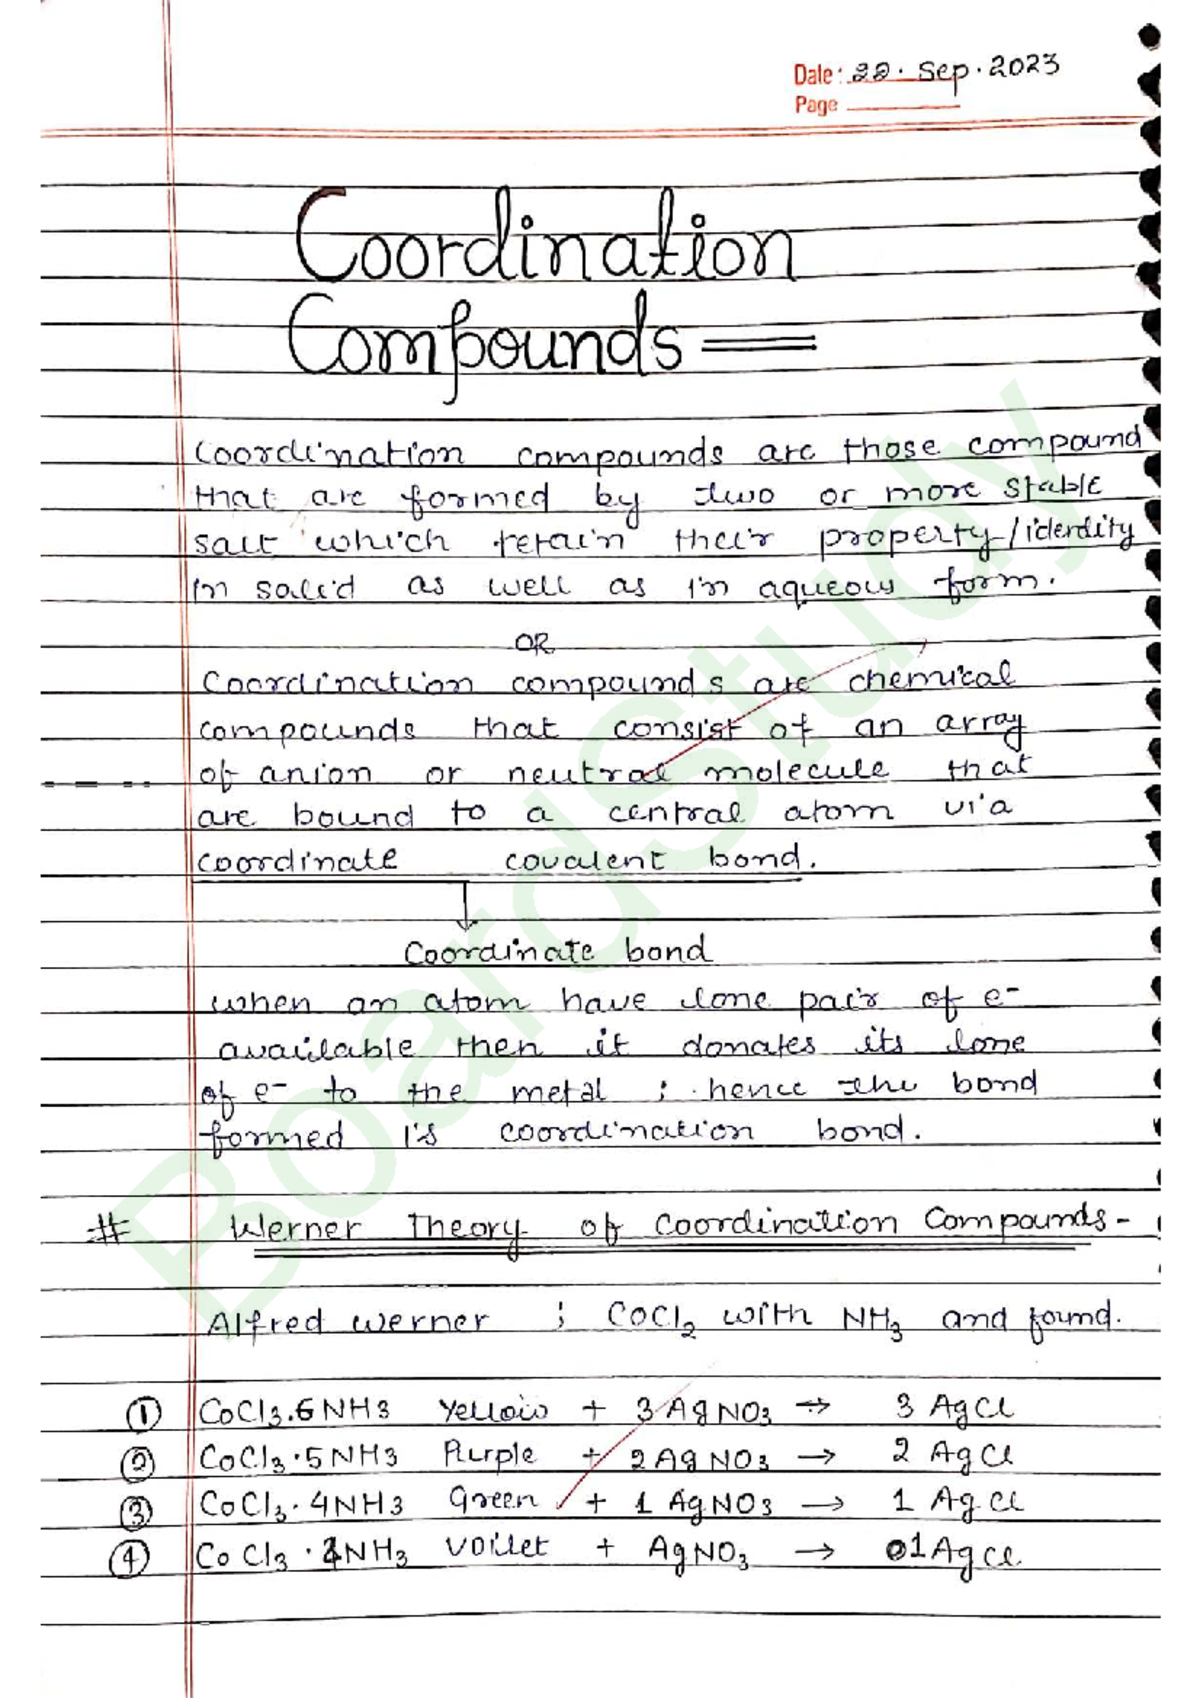 Date: 22. Sep. 2023
Page
Coordination
Compounds
Coordination compounds are those compound
that are formed by two or more stable
salt which retain their property/identity
in solid as well as in aqueous form.
OR
Coordination compounds are chemical
compounds that consist of an array
of anion or neutral molecule that
are bound to a central atom via
coordinate covalent bond.
Coordinate bond
when an atom have lone pair of e-
available then it donates its lone
of e- to the metal ; hence the bond
formed is coordination bond.
# Werner Theory of Coordination Compounds-
Alfred Werner ; COCl₂ with NH₃ and found.
① COCl₃.6NH3 Yellow + 3AgNO₃ → 3 AgCl
② CoCl₃.5NH3 Purple + 2AgNO₃ → 2 AgCl
③ COCl₃.4NH3 Green + 1 AgNO₃ → 1 AgCl
④ CoCl₃.4NH₃ voilet + AgNO₃ → 01AgCl.
BoardStudy